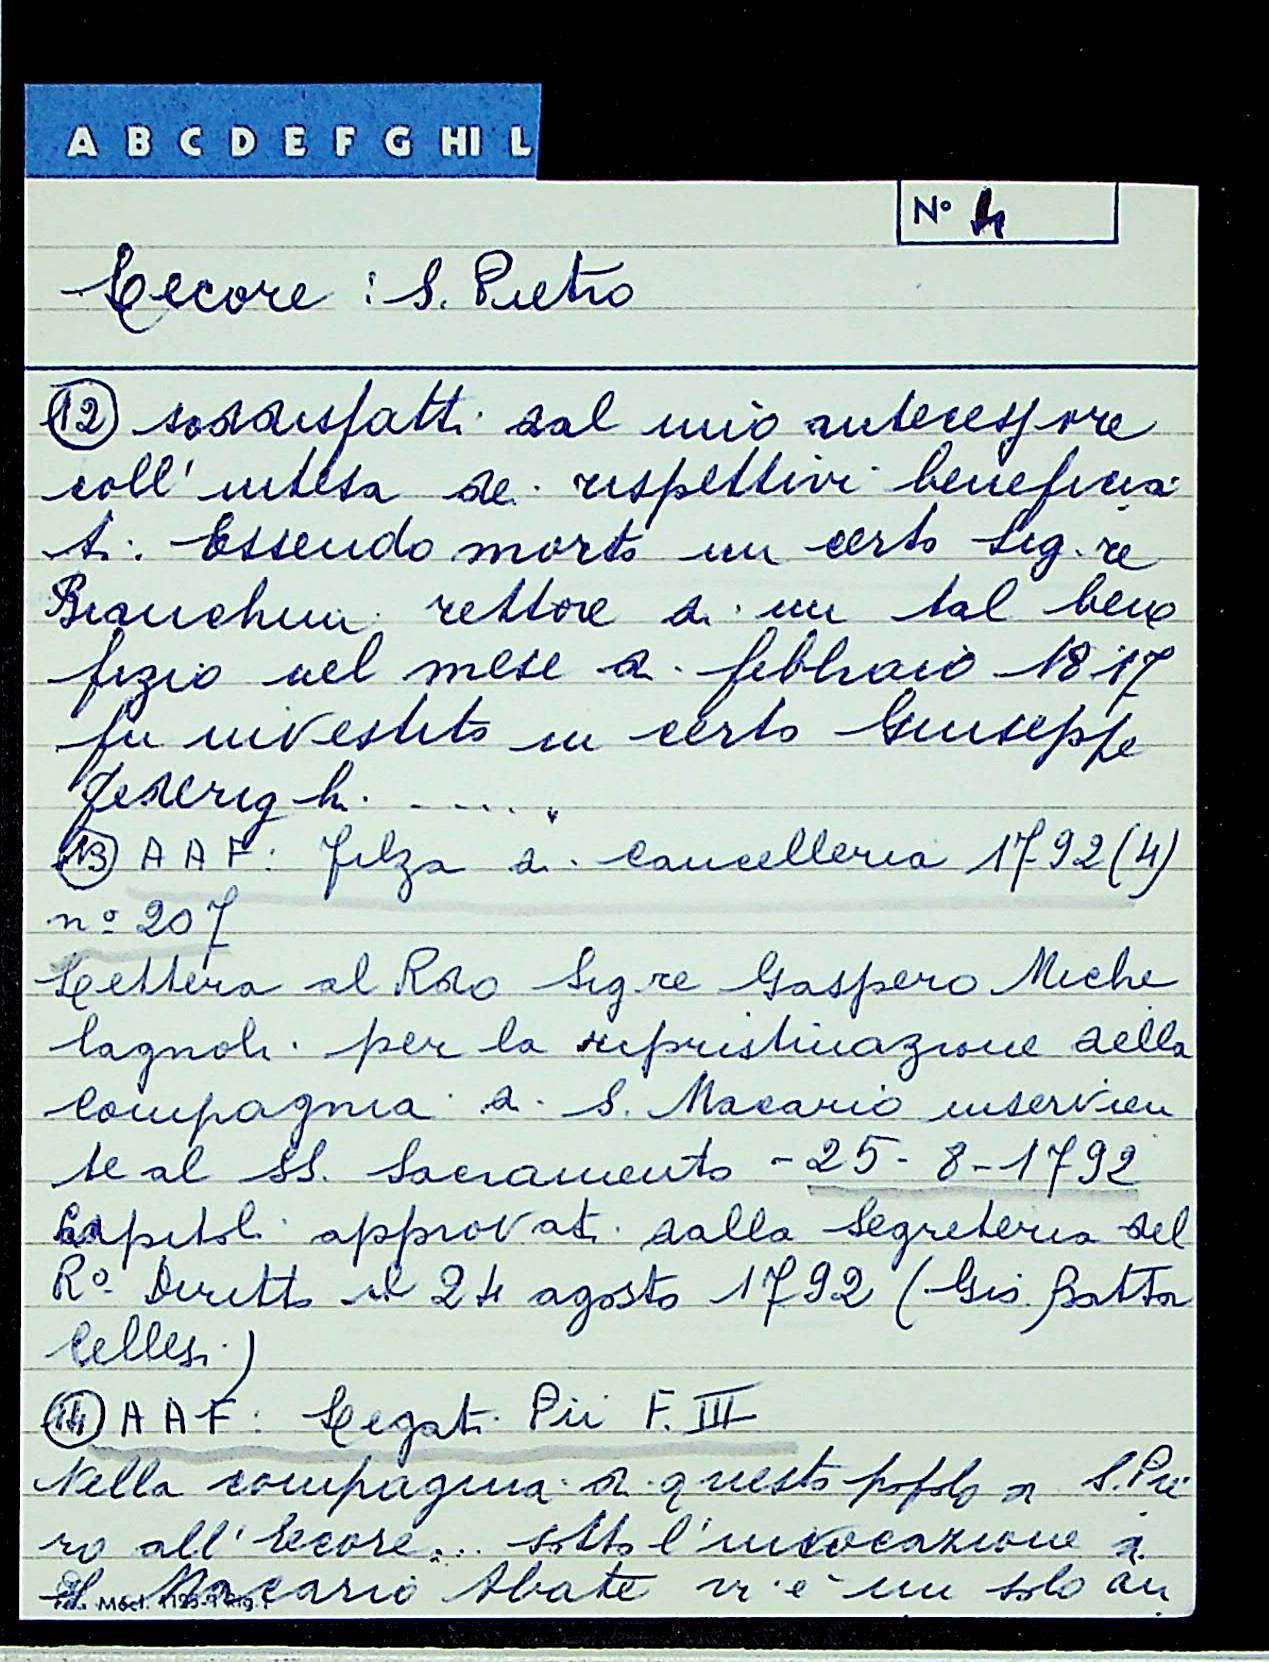 A B C D E F G HI L
N° 4
Lecore : S. Pietro
(12) soddisfatti dal mio antecessore
coll' intesa de rispettivi beneficia
ti. Essendo morto un certo Sig.re
Bianchini rettore di un tal bene
fizio nel mese di febbraio 1817
fu investito un certo Giuseppe
Federighi ......
(13) A A F: Filza di cancelleria 1792 (4)
n° 207
Lettera al Rdo Sigre Gaspero Miche
lagnoli per la ripristinazione della
Compagnia di S. Macario inservien
te al SS. Sacramento - 25-8-1792
Capitoli approvati dalla Segreteria del
R° Diritto il 24 agosto 1792 (Gio. Batta
Cellesi)
(14) A A F: Legati Pii F. III
Nella compagnia di questo popolo di S. Pie
ro all' Lecore... sotto l'invocazione di
S. Macario Abate vi è un solo an